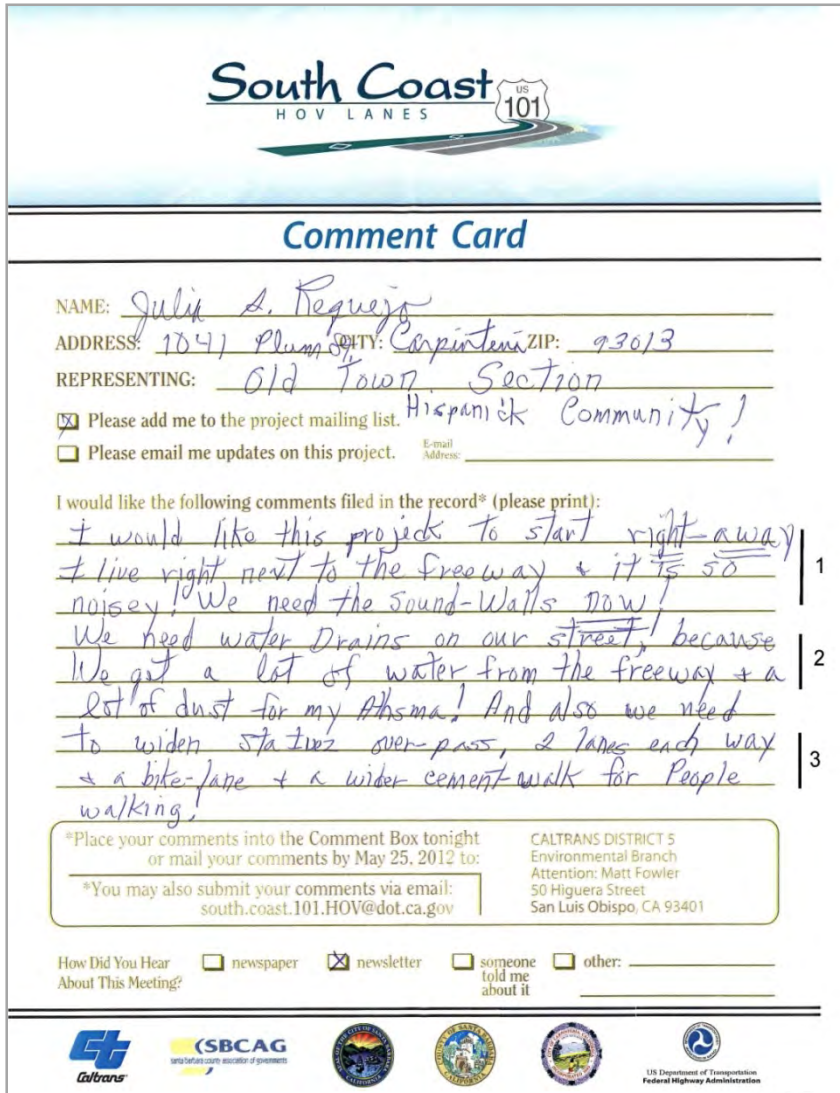 South Coast
HOV LANES
US
101
Comment Card
NAME: Julia A. Requejo
ADDRESS: 1041 Plum St. CITY: Carpinteria ZIP: 93013
REPRESENTING: Old Town Section
Please add me to the project mailing list. Hispanick Community!
Please email me updates on this project. E-mail Address:
I would like the following comments filed in the record* (please print):
I would like this projeck to start right-away
I live right next to the freeway & it is so
noisey! We need the Sound-Walls now!
1
We need water Drains on our street! because
We get a lot of water from the freeway & a
2
lot of dust for my Athsma! And also we need
to widen over-pass, 2 lanes each way
& a bike-lane & a wider cement-walk for People
3
walking!
*Place your comments into the Comment Box tonight
or mail your comments by May 25, 2012 to:
*You may also submit your comments via email:
south.coast.101.HOV@dot.ca.gov
CALTRANS DISTRICT 5
Environmental Branch
Attention: Matt Fowler
50 Higuera Street
San Luis Obispo, CA 93401
How Did You Hear
About This Meeting?
newspaper
newsletter
someone
told me
about it
other:
Caltrans
SBCAG
santa barbara county association of governments
US Department of Transportation
Federal Highway Administration